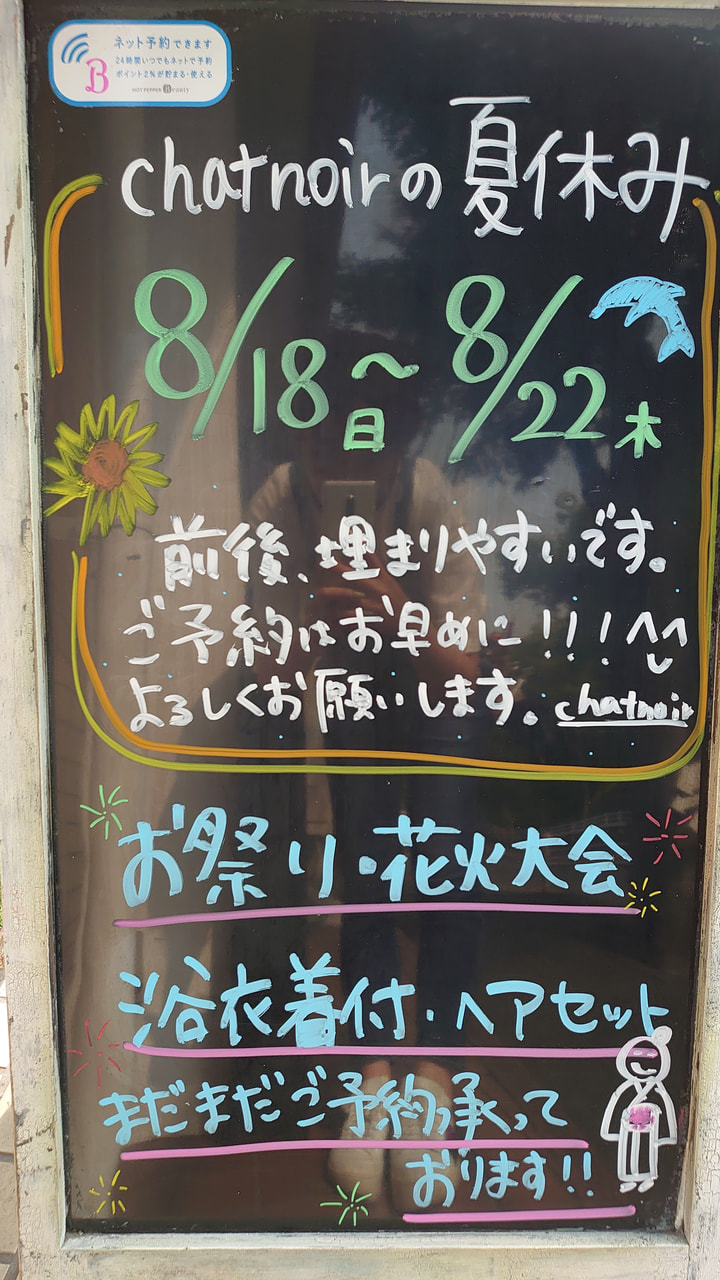 ネット予約できます
24時間いつでもネットで予約
ポイント2%が貯まる・使える
HOT PEPPER Beauty
B
chatnoirの夏休み
8/18日〜8/22木
前後、埋まりやすいです。
ご予約はお早めに!!!^^
よろしくお願いします。chatnoir
お祭り・花火大会
浴衣着付・ヘアセット
まだまだご予約承って
おります!!